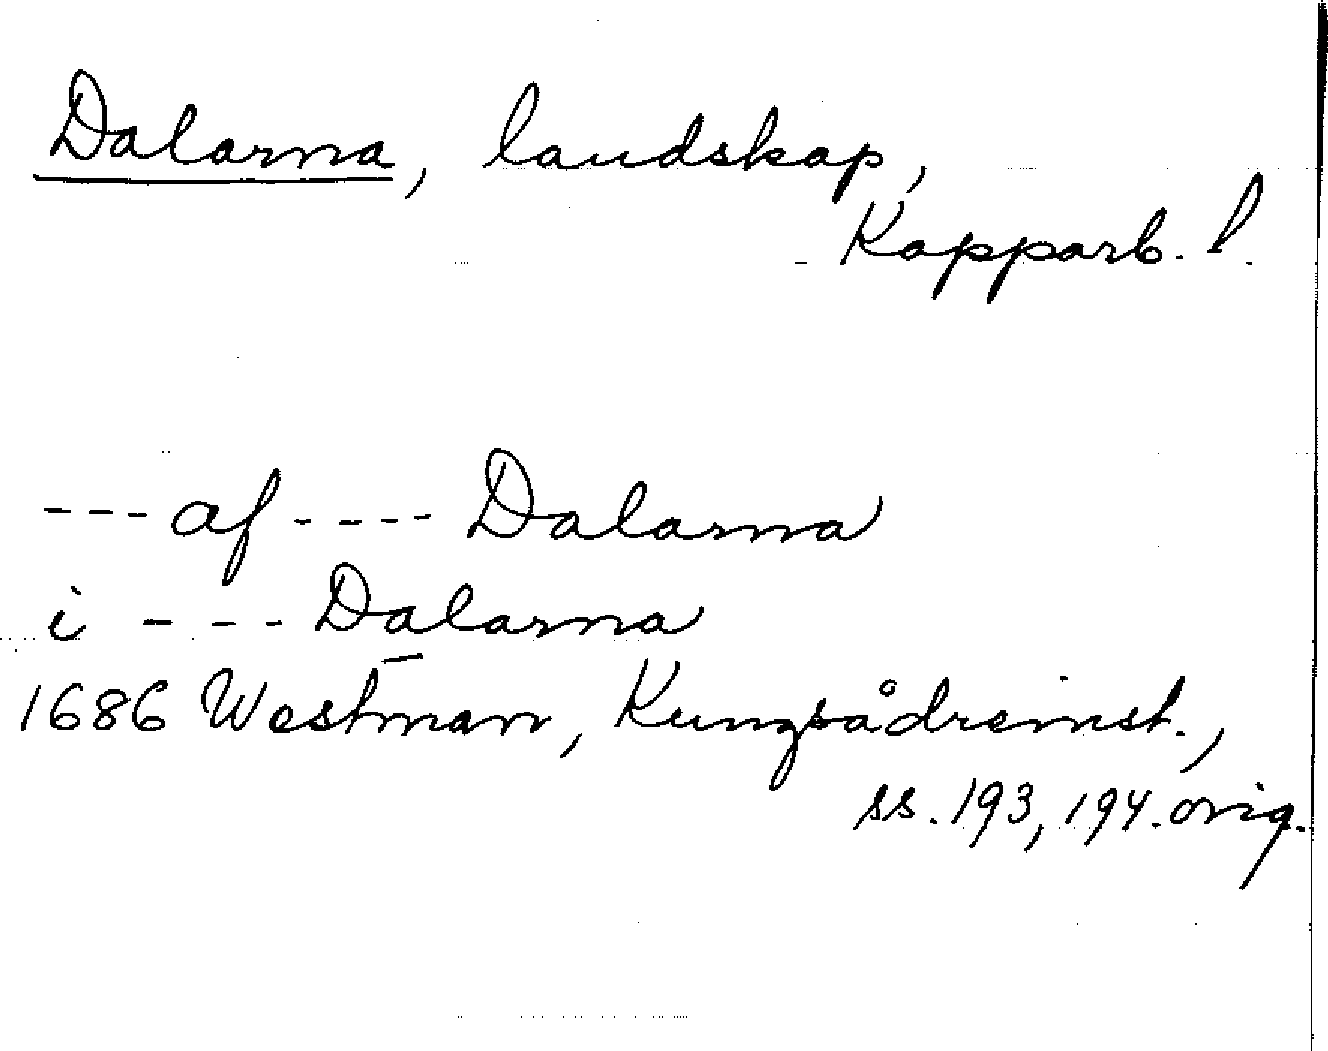 Dalarna, landskap,
Kopparb. l.
--- af ---- Dalarna
i --- Dalarna
1686 Westman, Kungsådreinst.,
ss. 193, 194. orig.